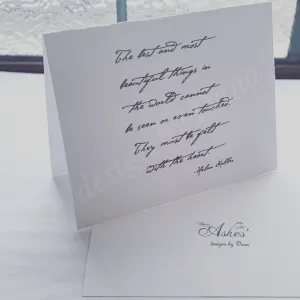 The best and most
beautiful things in
the world cannot
be seen or even touched
They must be felt
with the heart
Helen Keller
Ashes
designs by Dana